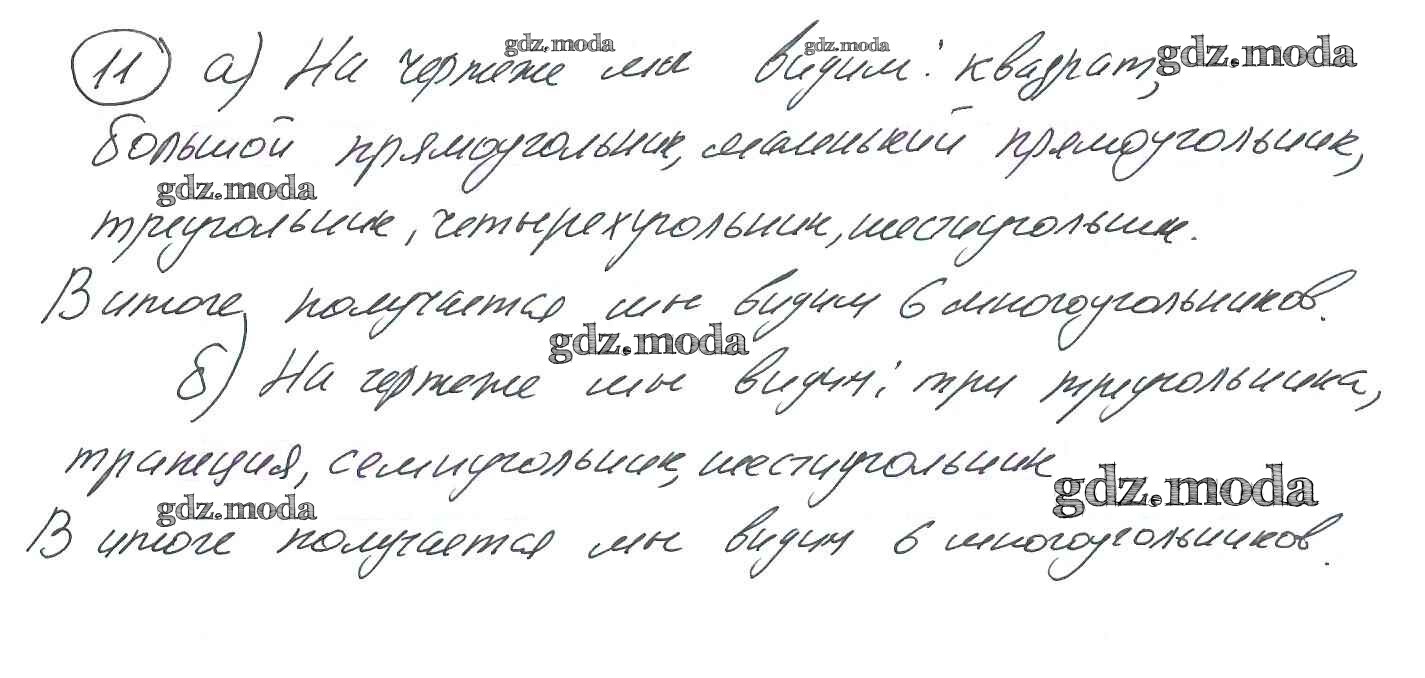 11 а) На чертеже мы видим: квадрат,
большой прямоугольник, маленький прямоугольник,
треугольник, четырехугольник, шестиугольник.
В итоге получается мы видим 6 многоугольников.
б) На чертеже мы видим: три треугольника,
трапеция, семиугольник, шестиугольник
В итоге получается мы видим 6 многоугольников.
gdz.moda
gdz.moda
gdz.moda
gdz.moda
gdz.moda
gdz.moda
gdz.moda